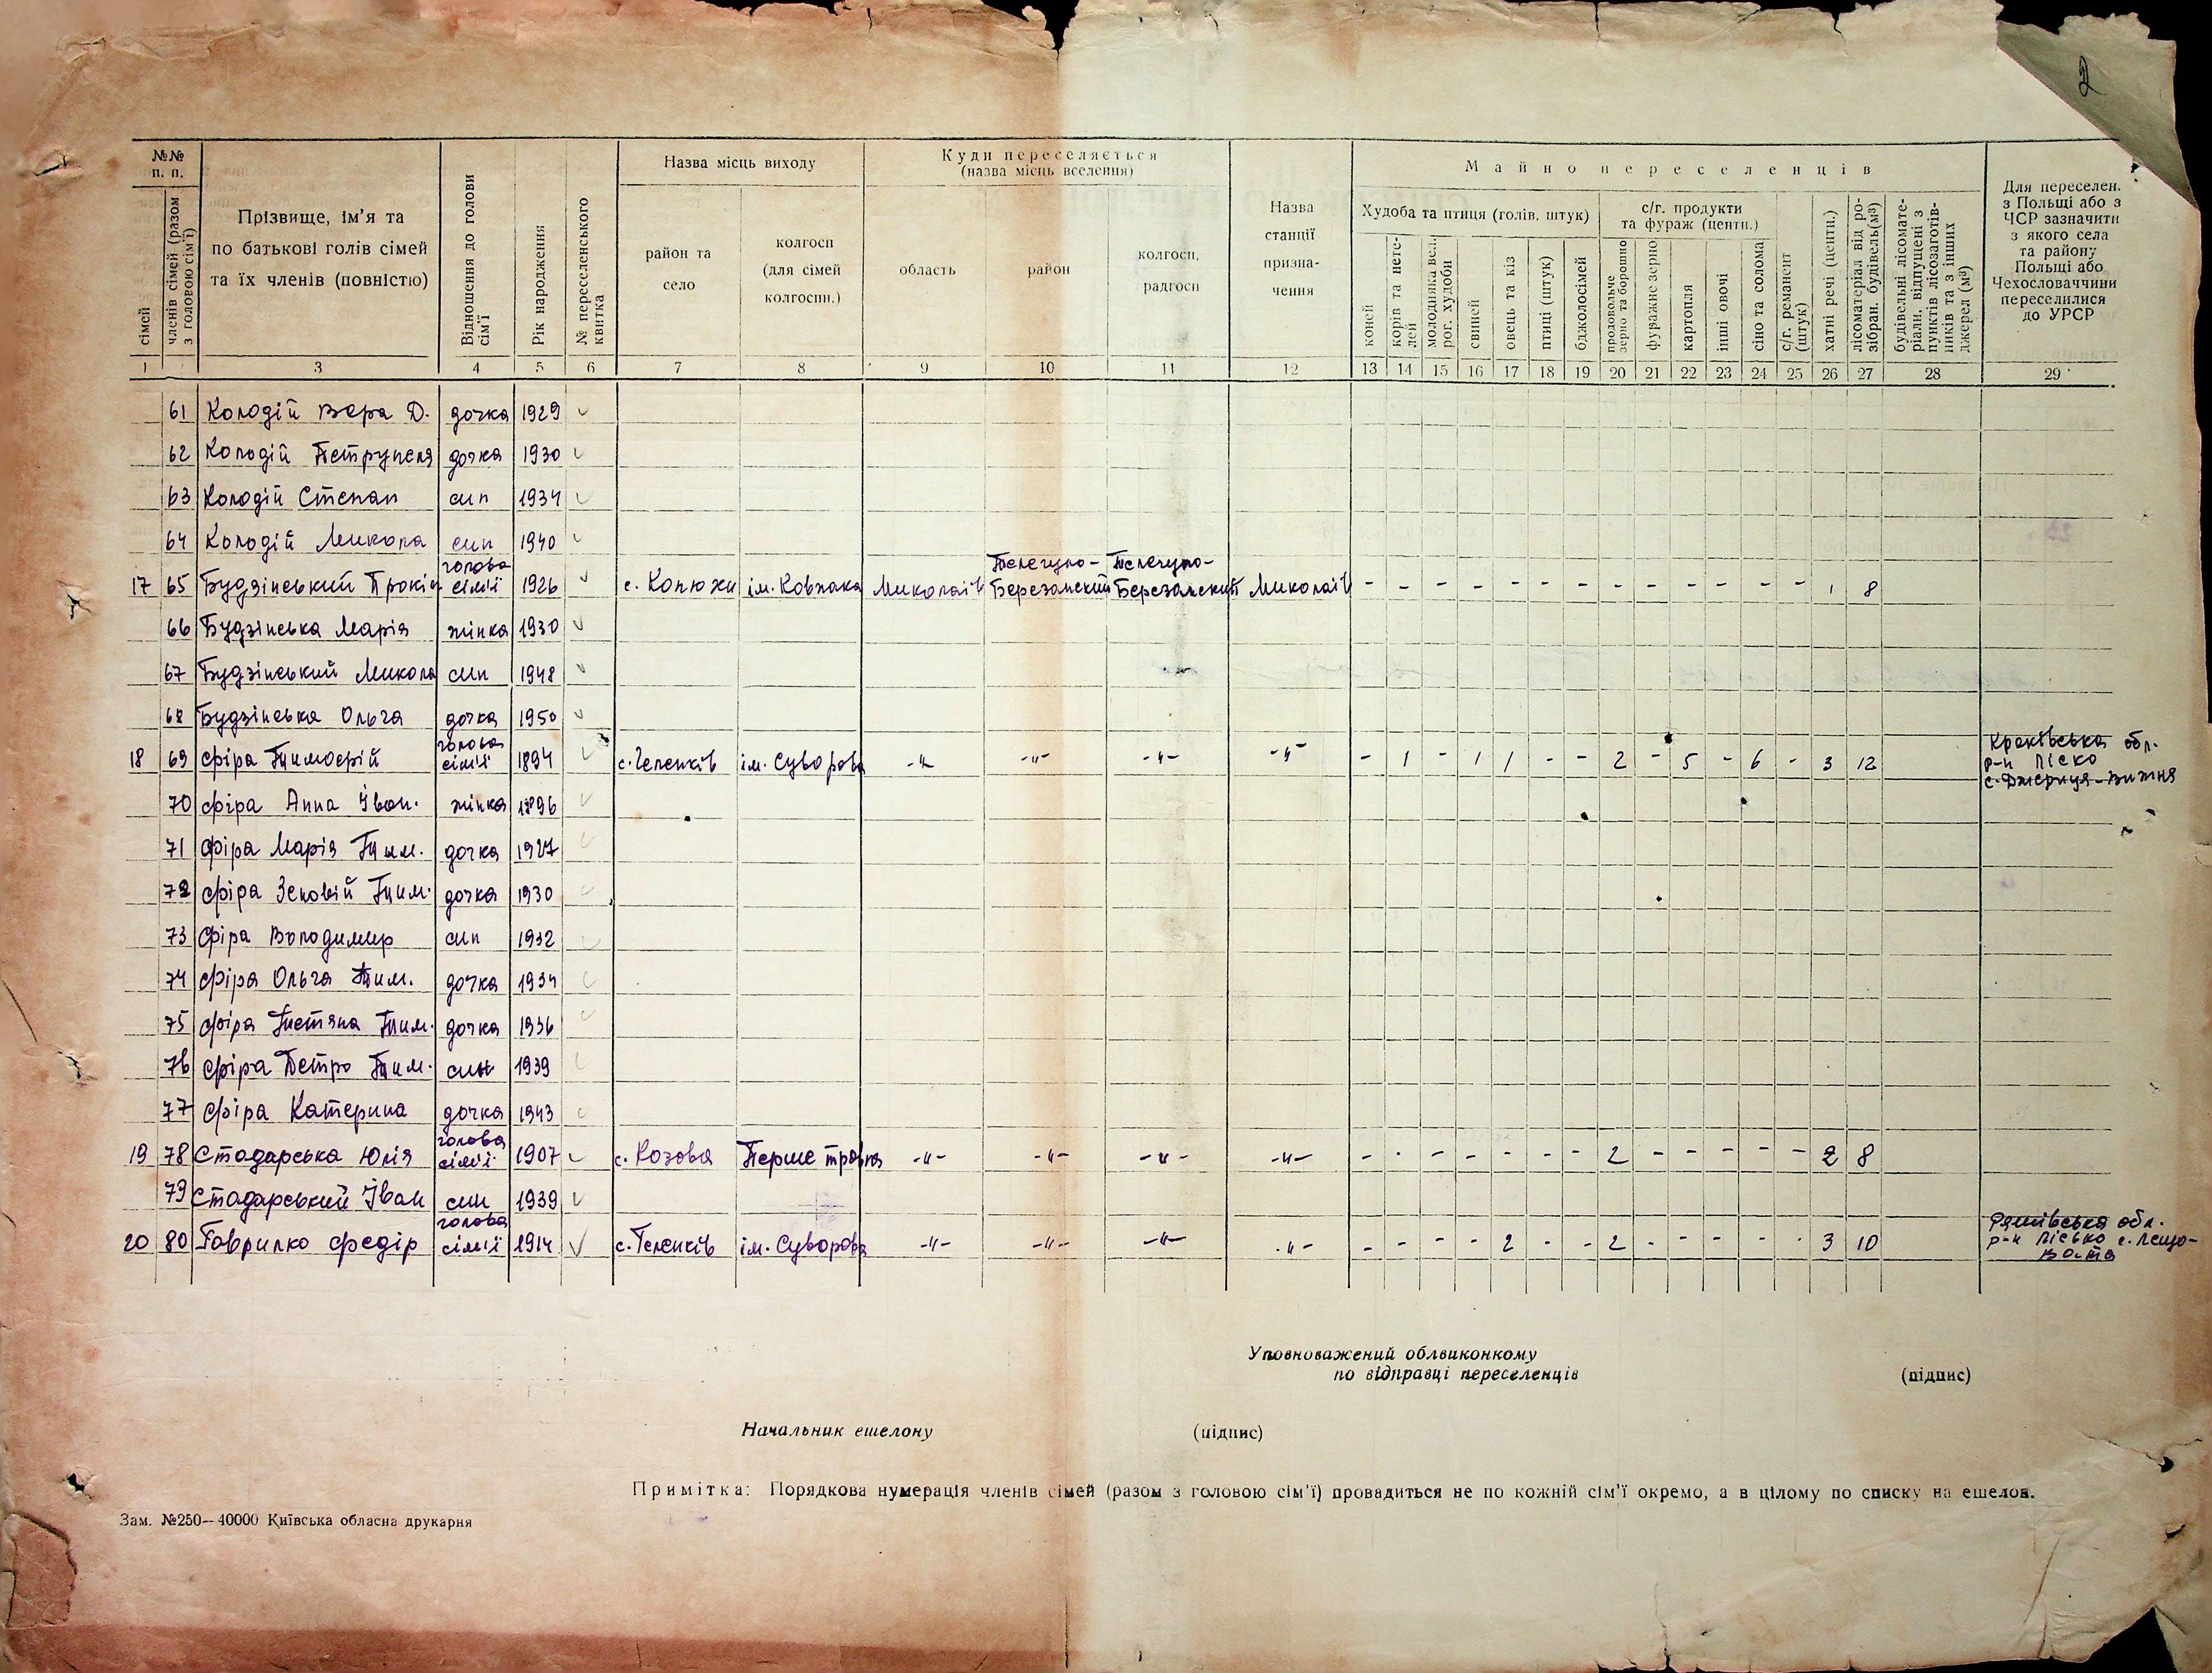 2
№№ п. п.
сімей
членів сімей (разом з головою сім'ї)
Прізвище, ім'я та
по батькові голів сімей
та їх членів (повністю)
Відношення до голови сім'ї
Рік народження
№ переселенського квитка
Назва місць виходу
район та село
колгосп (для сімей колгоспн.)
Куди переселяється
(назва місць вселення)
область
район
колгосп, радгосп
Назва станції призна-чення
Майно переселенців
Худоба та птиця (голів, штук)
коней
корів та нете-лей
молодняка вел. рог. худоби
свиней
овець та кіз
птиці (штук)
бджолосімей
с/г. продукти та фураж (центн.)
продовольче зерно та борошно
фуражне зерно
картопля
інші овочі
сіно та солома
с/г. реманент (штук)
хатні речі (центн.)
лісоматеріал від ро-зібран. будівель(м³)
будівельні лісомате-ріали, відпущені з пунктів лісозаготів-ників та з інших джерел (м³)
Для переселен. з Польщі або з ЧСР зазначити з якого села та району Польщі або Чехословаччини переселилися до УРСР
1 3 4 5 6 7 8 9 10 11 12 13 14 15 16 17 18 19 20 21 22 23 24 25 26 27 28 29
61 Колодій Вера Д. дочка 1929 v
62 Колодій Петрунеля дочка 1930 v
63 Колодій Степан син 1934 v
64 Колодій Микола син 1940 v
17 65 Будзінський Прокіп голова сім'ї 1926 v с. Конюхи ім. Ковпака Миколаїв Телегуло-Березанський Телегуло-Березанский Миколаїв - - - - - - - - - - - - - 1 8
66 Будзінська Марія жінка 1930 v
67 Будзінський Микола син 1948 v
68 Будзінська Ольга дочка 1950 v
18 69 Фіра Тимофій голова сім'ї 1894 v с. Теленків ім. Суворова -"- -"- -"- -"- - 1 - 1 1 - - 2 - 5 - 6 - 3 12 Краківська обл. р-н Ліско с.
70 Фіра Анна Іван. жінка 1896 v
71 Фіра Марія Тим. дочка 1927 v
72 Фіра Зеновій Тим. дочка 1930 v
73 Фіра Володимир син 1932 v
74 Фіра Ольга Тим. дочка 1934 v
75 Фіра Тетяна Тим. дочка 1936 v
76 Фіра Петро Тим. син 1939 v
77 Фіра Катерина дочка 1943 v
19 78 Стадарська Юлія голова сім'ї 1907 v с. Козова Перше травня -"- -"- -"- -"- - - - - - - - 2 - - - - - 2 8
79 Стадарський Іван син 1939 v
20 80 Гаврилко Федір голова сім'ї 1914 v с. Теленків ім. Суворова -"- -"- -"- -"- - - - - 2 - - 2 - - - - - 3 10 обл. р-н Лісько с. Лещо-вата
Уповноважений облвиконкому
по відправці переселенців (підпис)
Начальник ешелону (підпис)
Примітка: Порядкова нумерація членів сімей (разом з головою сім'ї) провадиться не по кожній сім'ї окремо, а в цілому по списку на ешелон.
Зам. №250—40000 Київська обласна друкарня